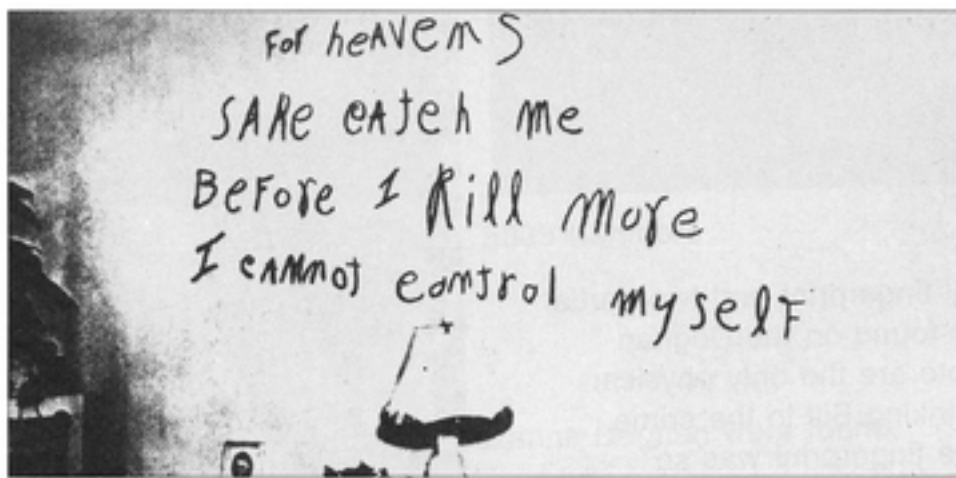 For heAVenS
SAKe cATch me
BeFore I Kill More
I cANNot control myself